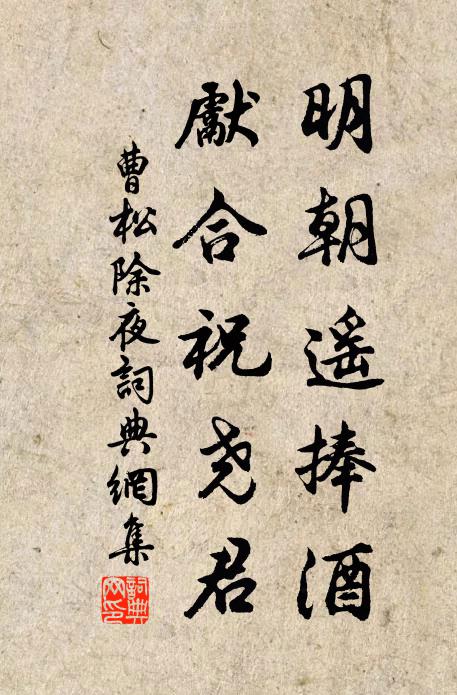 明朝遥捧酒
獻合祝尧君
曹松除夜詞典網集